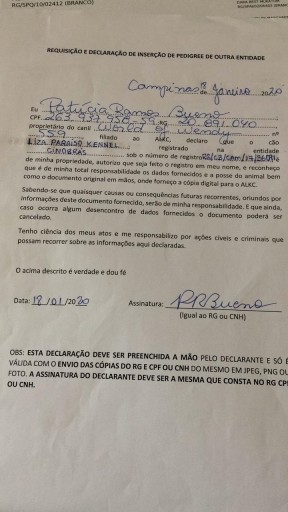 RG/SPQ/10/02412 (BRANCO)
REQUISIÇÃO E DECLARAÇÃO DE INSERÇÃO DE PEDIGREE DE OUTRA ENTIDADE
Campinas 18 de Janeiro 2020
Eu Patrícia Ramos Bueno
CPF. RG. 20.891.040
proprietário do canil World of Wendy nº
559 filiado ao ALKC, declaro que o cão
LIZA PARAISO KENNEL registrado na entidade
CINOBRAS sob o número de registro
de minha propriedade, autorizo que seja feito o registro em meu nome, e reconheço
que é de minha total responsabilidade os dados fornecidos e a posse do animal bem
como o documento original em mãos, onde forneço a cópia digital para o ALKC.
Sabendo-se que quaisquer causas ou consequências futuras recorrentes, oriundos por
informações deste documento fornecido, serão de minha responsabilidade. E que ainda,
caso ocorra algum desencontro de dados fornecidos o documento poderá ser
cancelado.
Tenho ciência dos meus atos e me responsabilizo por ações cíveis e criminais que
possam recorrer sobre as informações aqui declaradas.
O acima descrito é verdade e dou fé
Data: 18/01/2020 Assinatura: PRBueno
(Igual ao RG ou CNH)
OBS: ESTA DECLARAÇÃO DEVE SER PREENCHIDA A MÃO PELO DECLARANTE E SÓ É
VÁLIDA COM O ENVIO DAS CÓPIAS DO RG E CPF OU CNH DO MESMO EM JPEG, PNG OU
FOTO. A ASSINATURA DO DECLARANTE DEVE SER A MESMA QUE CONSTA NO RG CPF
OU CNH.